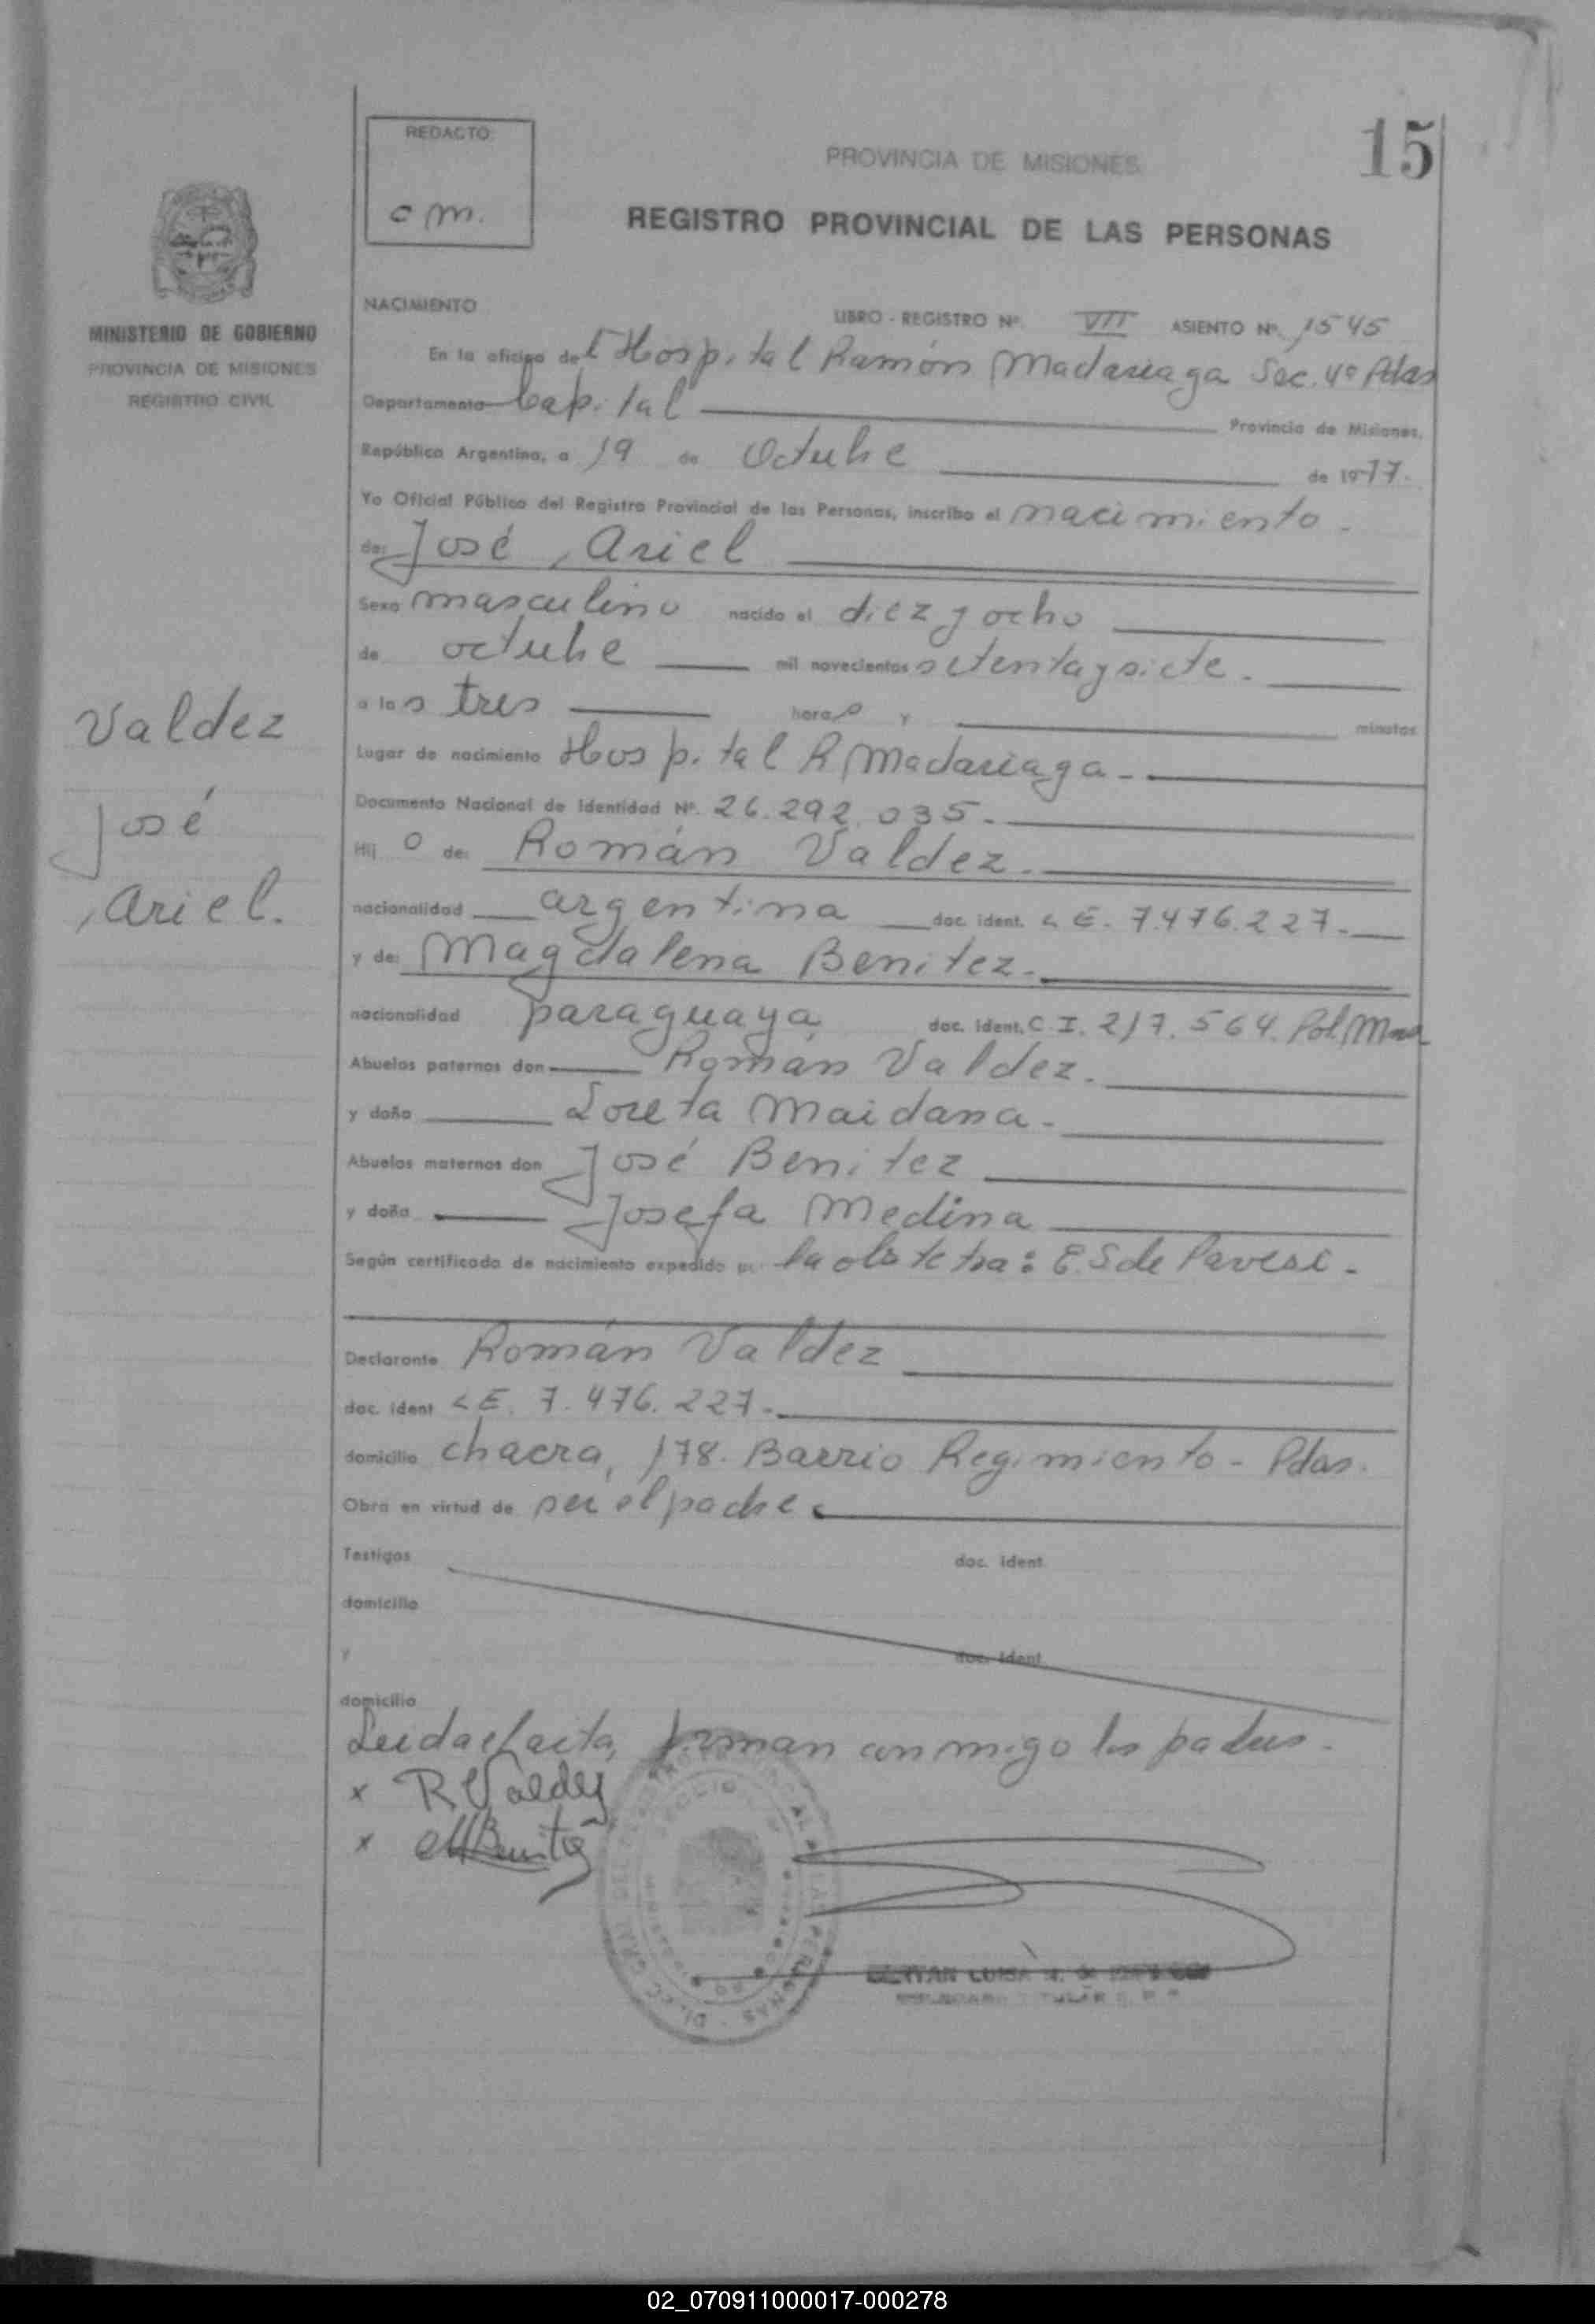 15
REDACTO:
c m.
PROVINCIA DE MISIONES
REGISTRO PROVINCIAL DE LAS PERSONAS
MINISTERIO DE GOBIERNO
PROVINCIA DE MISIONES
REGISTRO CIVIL
NACIMIENTO
LIBRO - REGISTRO Nº. VII ASIENTO Nº. 1545
En la oficina del Hospital Ramón Madariaga Sec. 4º Pdas
Departamento Capital Provincia de Misiones,
República Argentina, a 19 de Octubre de 1977.
Yo Oficial Público del Registro Provincial de las Personas, inscribo el nacimiento.
de: José, Ariel
Sexo masculino nacido el diez y ocho
de octubre mil novecientos setenta y siete.
a las tres horas y minutos
Lugar de nacimiento Hospital R. Madariaga.-
Documento Nacional de Identidad Nº. 26.292.035.-
Hijo de: Román Valdez.
nacionalidad argentina doc. ident. L E. 7.476.227.-
y de: Magdalena Benitez.
nacionalidad paraguaya doc. ident. C.I. 217.564. Pol. Mnes
Abuelos paternos don Román Valdez.
y doña Loreta Maidana.
Abuelos maternos don José Benitez
y doña Josefa Medina
Según certificado de nacimiento expedido por la obstetra: E.S de Pavesi.-
Declarante Román Valdez
doc. ident L E. 7.476.227.-
domicilio chacra, 178. Barrio Regimiento - Pdas.
Obra en virtud de ser el padre.
Testigos doc. ident.
domicilio
y doc. ident.
domicilio
Leida el acta, firman conmigo los padres.
x R Valdez
x M Benitez
Valdez
José
, Ariel.
LUISA
TULAR
02_070911000017-000278